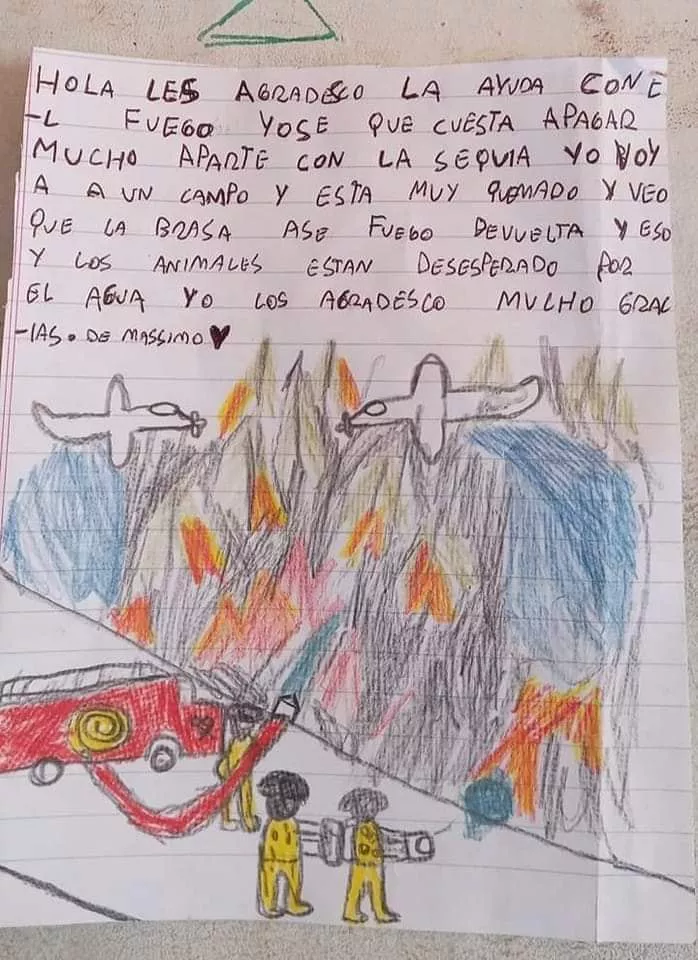 HOLA LES AGRADESCO LA AYUDA CON E
-L FUEGO YOSE QUE CUESTA APAGAR
MUCHO APARTE CON LA SEQUIA YO VOY
A A UN CAMPO Y ESTA MUY QUEMADO Y VEO
QUE LA BRASA ASE FUEGO DEVUELTA Y ESO
Y LOS ANIMALES ESTAN DESESPERADO POR
EL AGUA YO LOS AGRADESCO MUCHO GRAC
-IAS. DE MASSIMO ♥